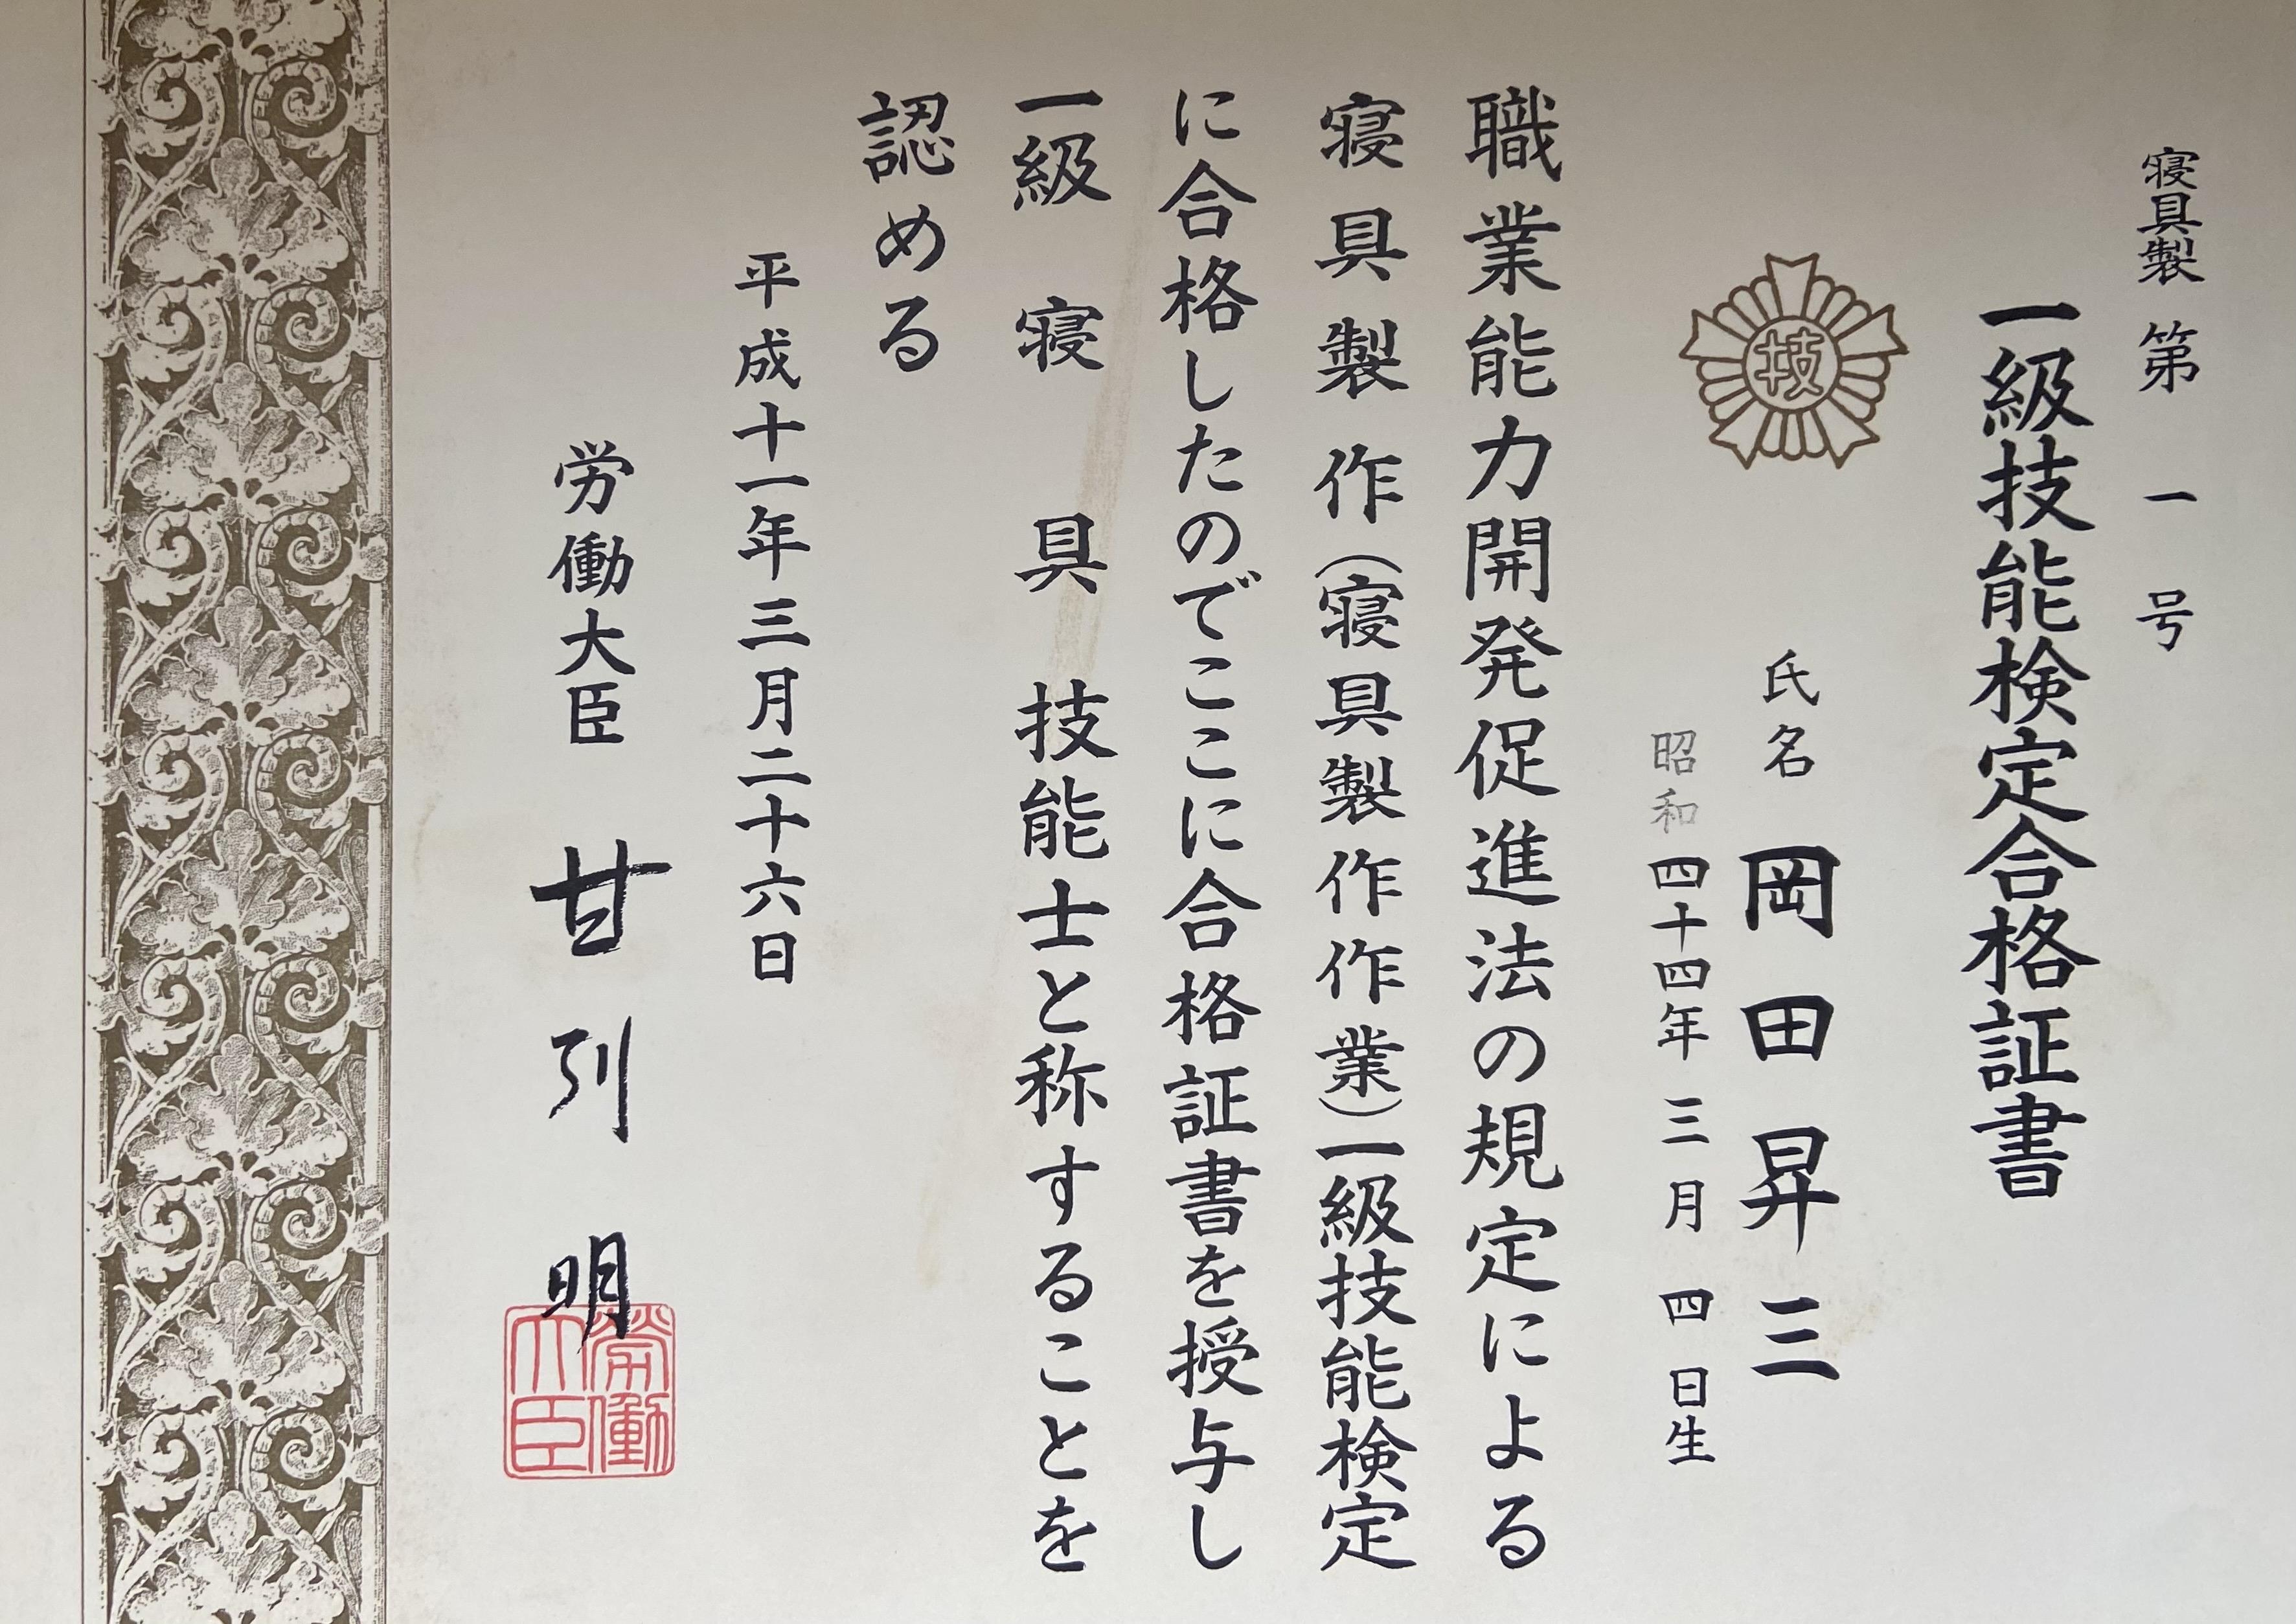 寝具製 第 一 号
一級技能検定合格証書
技
氏名 岡田昇三
昭和四十四年 三月 四日生
職業能力開発促進法の規定による
寝具製作(寝具製作作業)一級技能検定
に合格したのでここに合格証書を授与し
一級 寝 具 技能士と称することを
認める
平成十一年三月二十六日
労働大臣 甘利 明
労働大臣